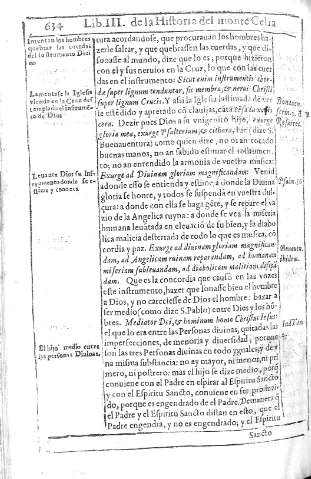 634 Lib. III. de la Historia del monte Celia
Inuentan los hombres
quebrar las cuerdas
del instrumento Diuino
Lamentase la Iglesia
Leuanta Dios su Instrumento
El hijo medio entre
las personas Diuinas.
uinta acordandose, que procurauan los hombres hazerle
saltar, y que quebrassen las cuerdas, y que disonasse
al mundo, dize que lo es, porque hizieron
con el y sus neruios en la Cruz, lo que con las cuerdas
en el instrumento: Sicut enim instrumentis chorda
super lignum tenduntur, sic membra, & nerui Christi
super lignum Crucis. Y assi la Iglesia lastimada de verte
estêdido y apretado cō clauos,
cera. Dezir pues Dios a su vnigenito hijo, exurge
gloria mea, exurge Psalterium, & cithara, fue (dize S.
Buenauentura) como quien dize, no os an tocado
buenas manos, no an sabido estimar el instrumento,
no an entendido la armonia de vuestra musica:
Exurge ad Diuinam gloriam magnificandam: Venid
adonde esso se entienda y estime; a donde la Diuina
gloria se honre, y todos se suspendā en vuestra dulçura:
a donde con ella se haga gête, y se repare el vazio
de la Angelica ruyna: a donde se vea la miseria
humana leuātada en eleuació de su bien, y la diabolica
malicia desterrada de todo lo que es musica, cōcordia
y paz. Exurge ad diuinem gloriam magnificandam,
ad Angelicam ruinam reparandam, ad humanam
miseriam subleuandam, ad diabolicam malitiam
Que es la concordia que causò en las vozes
este instrumento, hazer que sonasse bien el hombre
a Dios, y no careciesse de Dios el hombre: bazar a
ser medio (como dize S. Pablo) entre Dios y los hōbres.
Mediator Dei, & hominum homo Christus Iesus:
el que lo era entre las Personas diuinas, quitadas las
imperfecciones, de memoria y diuersidad, porque
son las tres Personas diuinas en todo yguales, y de vna
misma substancia: no ay mayor, ni menor, ni primero,
ni postrero: mas el hijo se dize medio, porque
conuiene con el Padre en espirar al Espiritu Sancto
y con el Espiritu Sancto, conuiene en ser produzido,
porque es engendrado de el Padre. Demanera q
el Padre y el Espiritu Sancto distan en esto, que el
Padre engendra, y no es engendrado, y el Espiritu
Sancto
Psalm. 56
Bonauen.
ibidem.